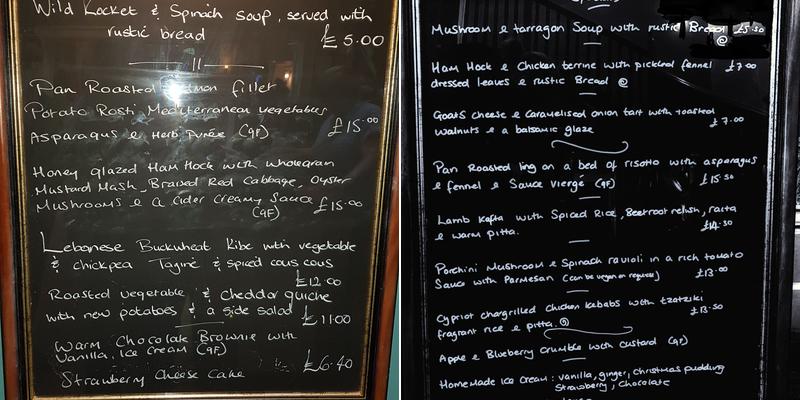 Wild Rocket & Spinach Soup, served with
rustic bread £5.00
Pan Roasted Salmon fillet
Potato Rosti, Mediterranean vegetables
Asparagus & Herb Purée (gf) £15.00
Honey glazed Ham Hock with wholegrain
Mustard Mash, Braised Red Cabbage, Oyster
Mushrooms & a Cider Creamy Sauce £15.00
(gf)
Lebanese Buckwheat Kibe with vegetable
& chickpea Tagine & spiced cous cous
£12.00
Roasted vegetable & Cheddar quiche
with new potatoes & a side salad £11.00
Warm Chocolate Brownie with
Vanilla Ice Cream (gf)
Strawberry Cheese Cake £6.40
Mushroom & tarragon Soup with rustic Bread £5.50
Ham Hock & Chicken terrine with pickled fennel £7.00
dressed leaves & rustic Bread
Goats cheese & Caramelised onion tart with toasted
walnuts & a balsamic glaze £7.00
Pan Roasted ling on a bed of risotto with asparagus
& fennel & Sauce Vierge (gf) £15.50
Lamb Kofta with Spiced Rice, Beetroot relish, raita
& warm pitta. £14.50
Porchini Mushroom & Spinach ravioli in a rich tomato
Sauce with Parmesan (can be vegan on request) £13.00
Cypriot chargrilled chicken kebabs with tzatziki
fragrant rice & pitta. £13.50
Apple & Blueberry crumble with custard (gf)
HomeMade Ice Cream: vanilla, ginger, christmas pudding
Strawberry, Chocolate